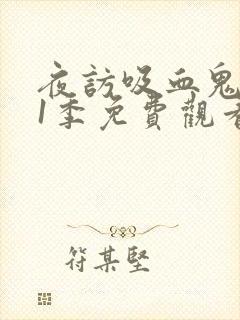 夜訪吸血鬼
1季免費觀看
符某堅